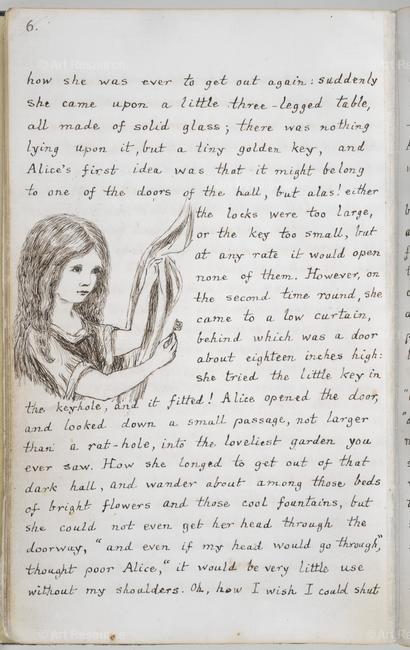 6.
how she was ever to get out again: suddenly
she came upon a little three-legged table,
all made of solid glass; there was nothing
lying upon it, but a tiny golden key, and
Alice's first idea was that it might belong
to one of the doors of the hall, but alas! either
the locks were too large,
or the key too small, but
at any rate it would open
none of them. However, on
the second time round, she
came to a low curtain,
behind which was a door
about eighteen inches high:
she tried the little key in
the keyhole, and it fitted! Alice opened the door,
and looked down a small passage, not larger
than a rat-hole, into the loveliest garden you
ever saw. How she longed to get out of that
dark hall, and wander about among those beds
of bright flowers and those cool fountains, but
she could not even get her head through the
doorway, "and even if my head would go through,"
thought poor Alice, "it would be very little use
without my shoulders. Oh, how I wish I could shut
© Art Resource